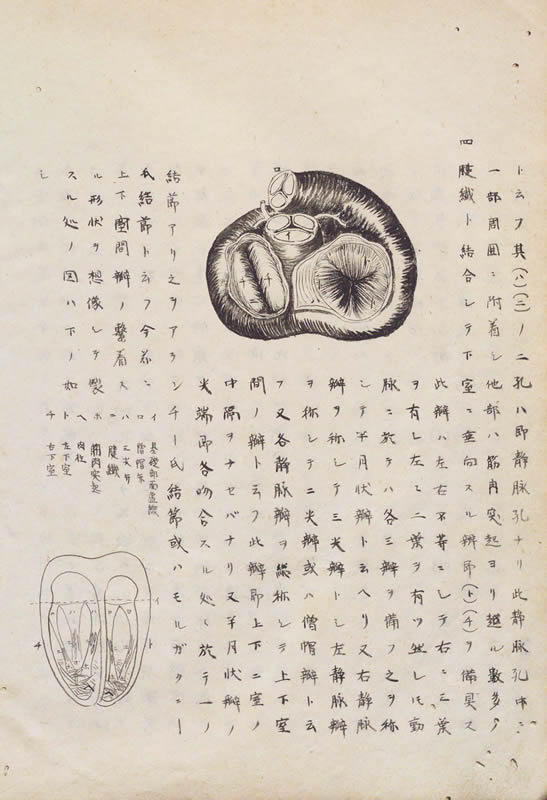 ト云フ其(ハ)(ニ)ノ二孔ハ即静脉孔ナリ此静脉孔中ニ
一部周囲ニ附着シ他部ハ筋肉突起ヨリ越ル數多ノ
腱織ト結合シテ下室ニ垂向スル辨即(ト)(チ)ヲ備具ス
此辨ハ左右不等ニシテ右ニ三葉
ヲ有し左ニ二葉ヲ有ツ然レ𪜈動
脉ニ於テハ各三辨ヲ備フ之ヲ称
シテ半月状辨ト云ヘリ又右静脉
辨ヲ称シテ三尖辨トシ左静脉辨
ヲ称シテ二尖辨或ハ僧帽辨ト云
フ又各静脉辨ヲ総称シテ上下室
間ノ辨ト云フ此辨即上下二室ノ
中隔ヲナセバナリ又半月状辨ノ
尖端即各吻合スル処ニ於テ一ノ
結節アリ之ヲアランチー氏結節或ハモルガクニー
氏結節ト云フ今茲ニ
上下室間辨ノ繋着ス
ル形状ヲ想像シテ製
スル処ノ図ハ下ノ如
シ
イ 基礎部面虚線
ロ 僧帽辨
ハ 三尖辨
ニ 腱織
ホ 筋肉突起
ヘ 肉柱
ト 左下室
チ 右下室
ロ
イ
チ
ト